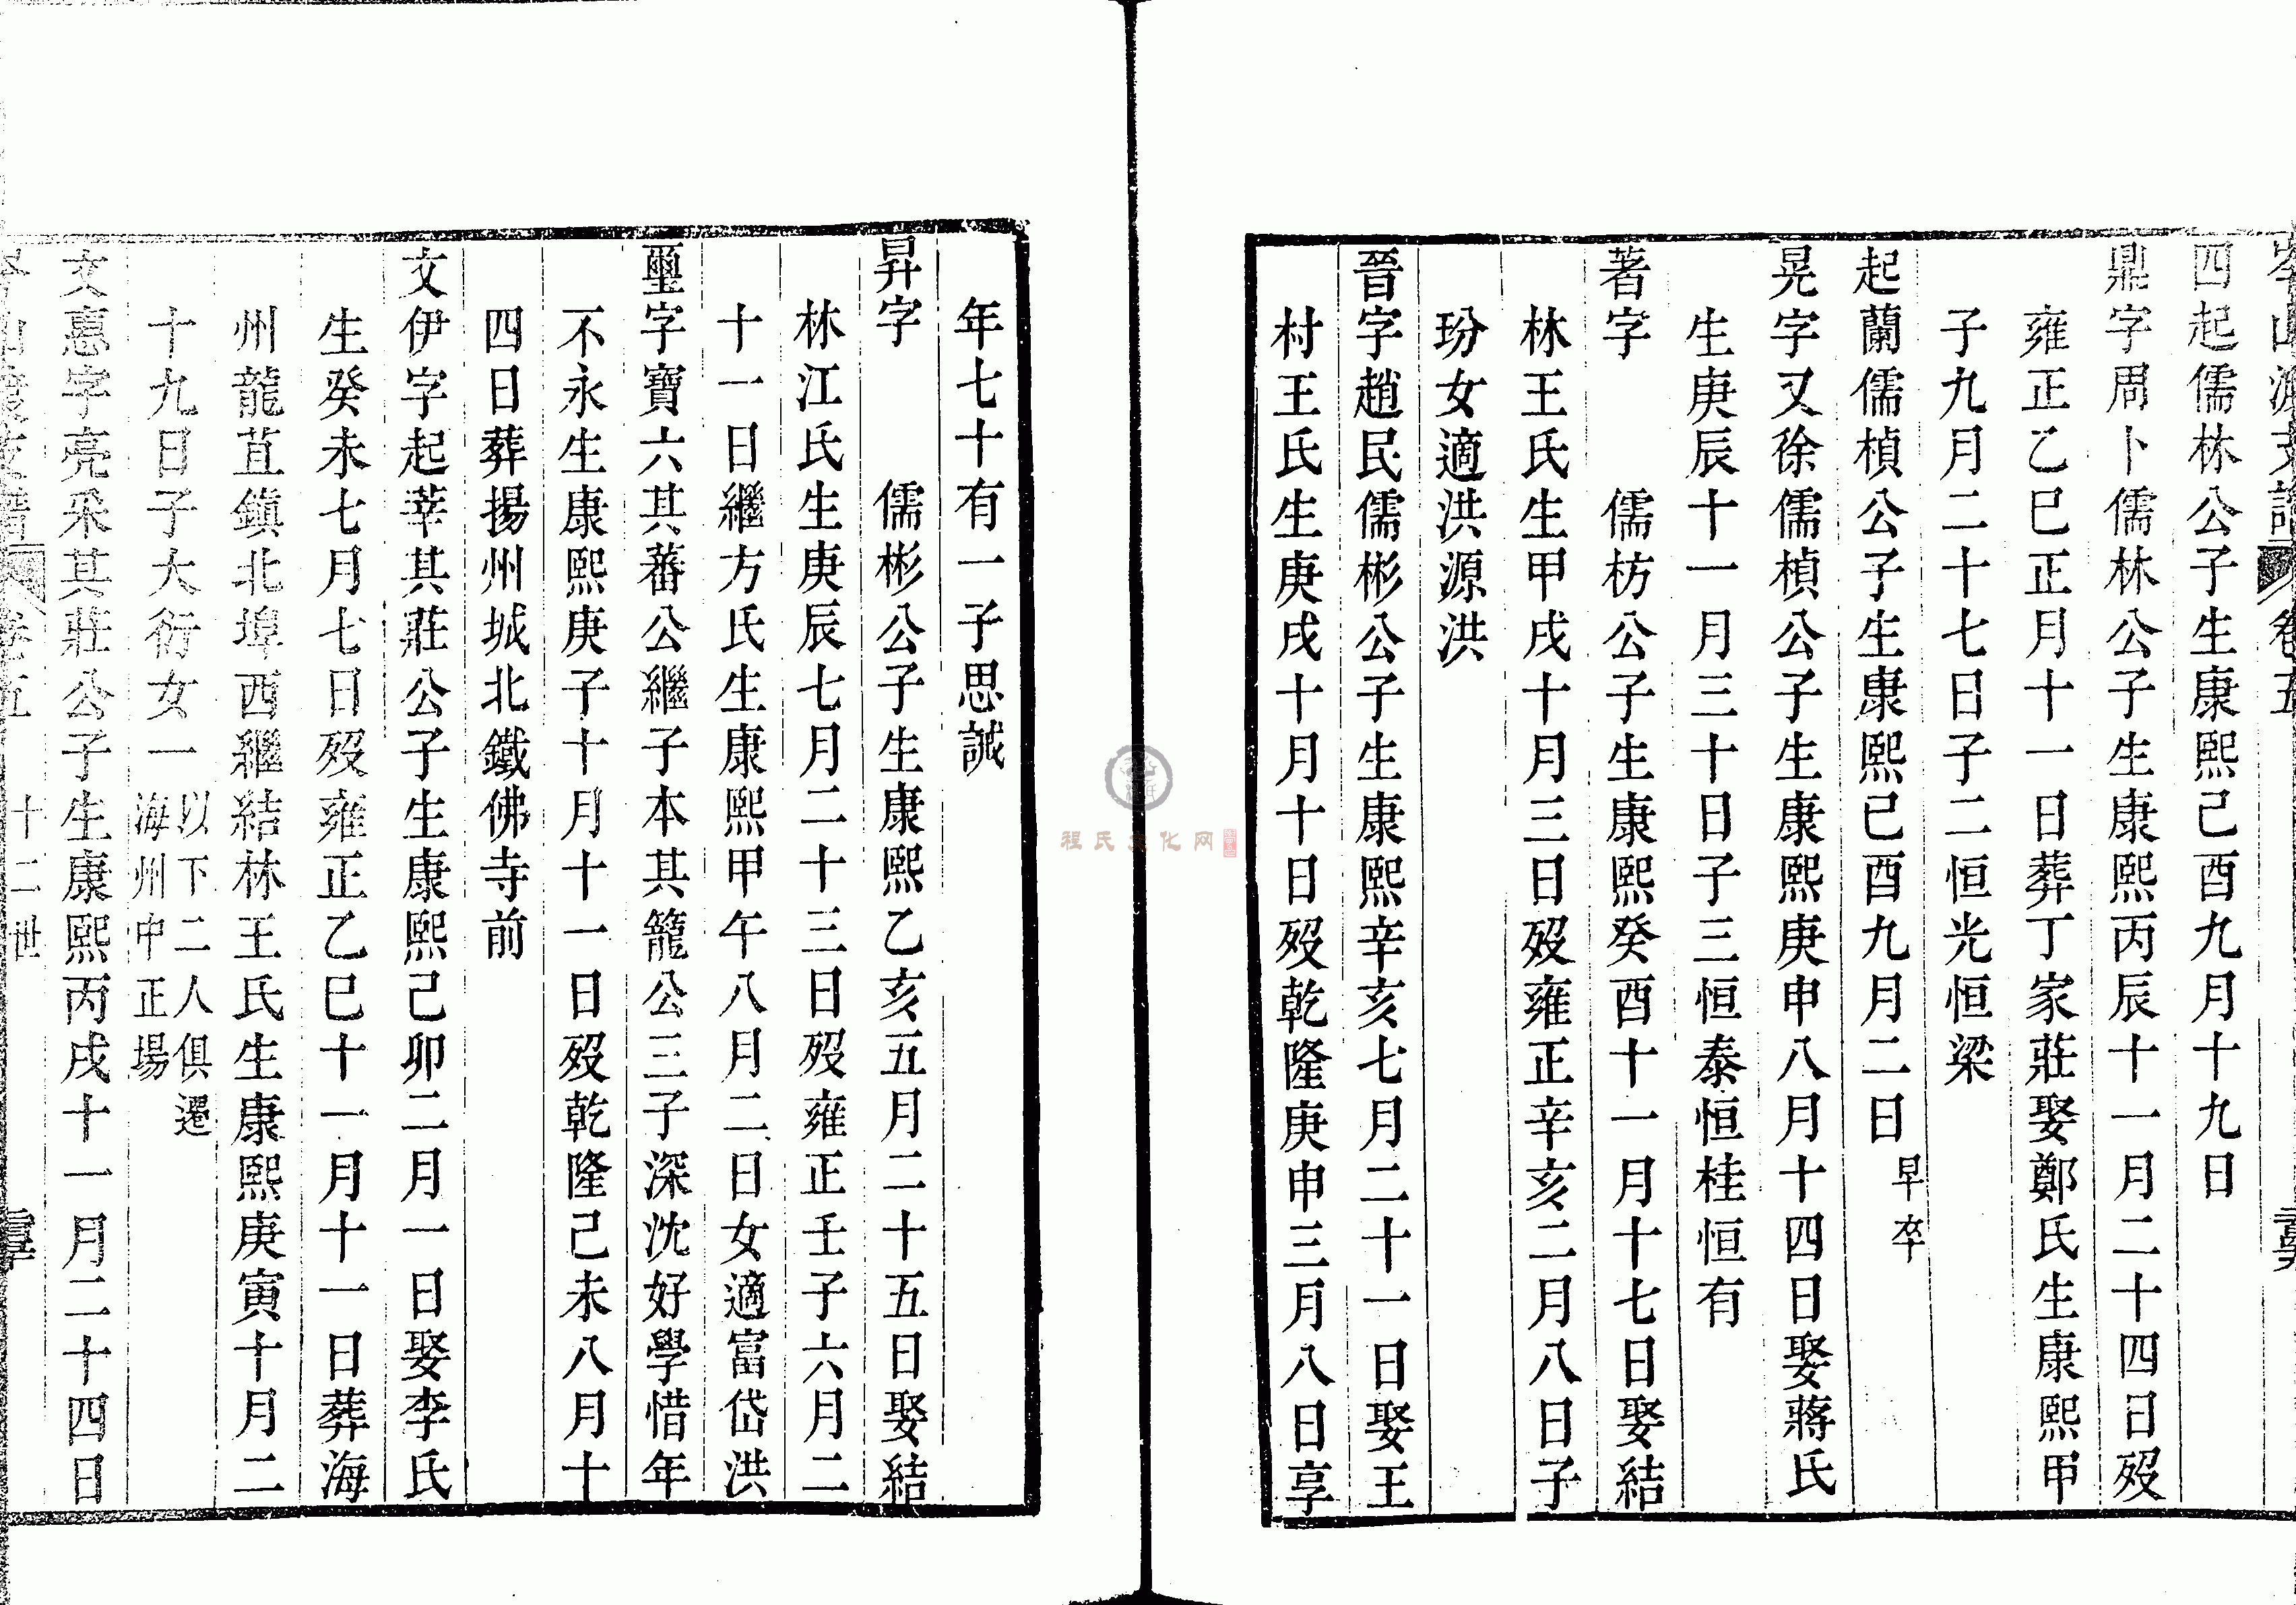 四起儒林公子生康熙己酉九月十九日
鼎字周卜儒林公子生康熙丙辰十一月二十四日歿
雍正乙巳正月十一日葬丁家莊娶鄭氏生康熙甲
子九月二十七日子二恒光恒梁
起蘭儒楨公子生康熙己酉九月二日早卒
晃字又徐儒楨公子生康熙庚申八月十四日娶蔣氏
生庚辰十一月三十日子三恒泰恒桂恒有
著字　儒枋公子生康熙癸酉十一月十七日娶結
林王氏生甲戌十月三日歿雍正辛亥二月八日子
玢女適洪源洪
晉字趙民儒彬公子生康熙辛亥七月二十一日娶王
村王氏生庚戌十月十日歿乾隆庚申三月八日享
年七十有一子思誠
昇字　儒彬公子生康熙乙亥五月二十五日娶結
林江氏生庚辰七月二十三日歿雍正壬子六月二
十一日繼方氏生康熙甲午八月二日女適富岱洪
璽字寶六其蕃公繼子本其籠公三子深沈好學惜年
不永生康熙庚子十月十一日歿乾隆己未八月十
四日葬揚州城北鐵佛寺前
文伊字起莘其莊公子生康熙己卯二月一日娶李氏
生癸未七月七日歿雍正乙巳十一月十一日葬海
州龍苴鎮北埠西繼結林王氏生康熙庚寅十月二
十九日子大衍女一以下二人俱遷海州中正場
文惠字亮采其莊公子生康熙丙戌十一月二十四日
卷五　十二世
程氏文化网